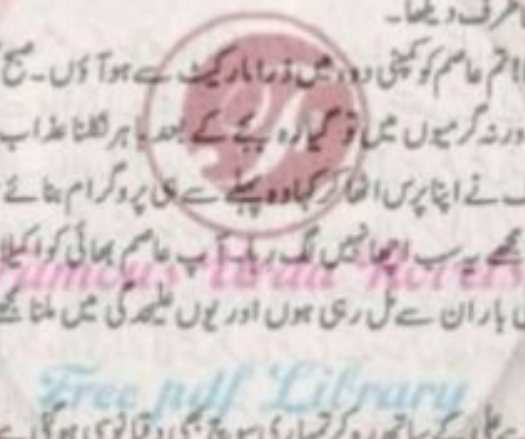 طرف دیکھا۔
تم عاصم کو کمپنی دو، میں ذرا مارکیٹ سے ہو آؤں۔ صبح
ورنہ گرمیوں میں تو گیارہ بجے کے بعد باہر نکلنا عذاب
نے اپنا پرس اٹھا کر کہا وہ پہلے سے ہی پروگرام بنائے
مجھے یہ سب اچھا نہیں لگ رہا۔ آپ عاصم بھائی کو اکیلا
بار ان سے مل رہی ہوں اور یوں علیحدگی میں ملنا مجھے
Famous Urdu Novels
Free pdf Library
کے ساتھ رہ کر تمہاری سوچ بھی دقیانوسی ہو گئی ہے